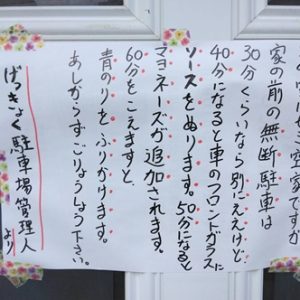 家の前の無断駐車は
30分くらいなら別にええけど
40分になると車のフロントガラスに
ソースをぬります。50分になると
マヨネーズが追加されます。
60分をこえますと
青のりをふりかけます。
あしからずごりょうしょう下さい。
げっきょく駐車場管理人
より